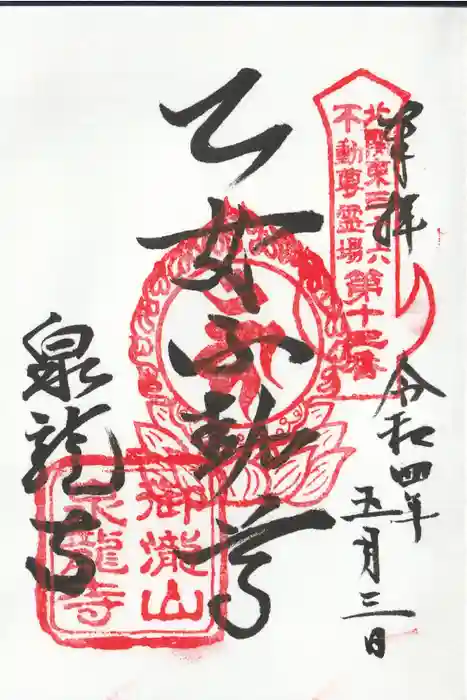 奉拝
令和四年
五月三日
北関東三十六
不動尊霊場
第十二番
乙女不動尊
泉龍寺
御瀧山
泉龍寺